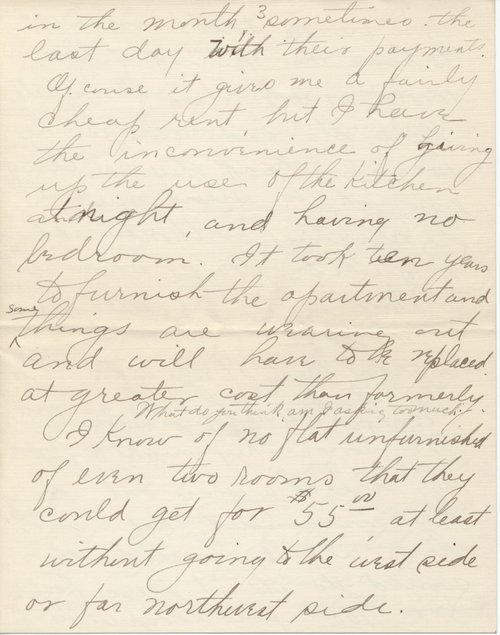 in the month 3 sometimes the
last day with their payments.
Of couse it gives me a fairly
cheap rent but I have
the inconvenience of giving
up the use of the kitchen
at night, and having no
bedroom. It took ten years
to furnish the apartment and
some
things are wearing out
and will have to be replaced
at greater cost than formerly.
What do you think am I asking too much.
I know of no flat unfurnished
of even two rooms that they
could get for $55.00 at least
without going to the west side
or far northwest side.